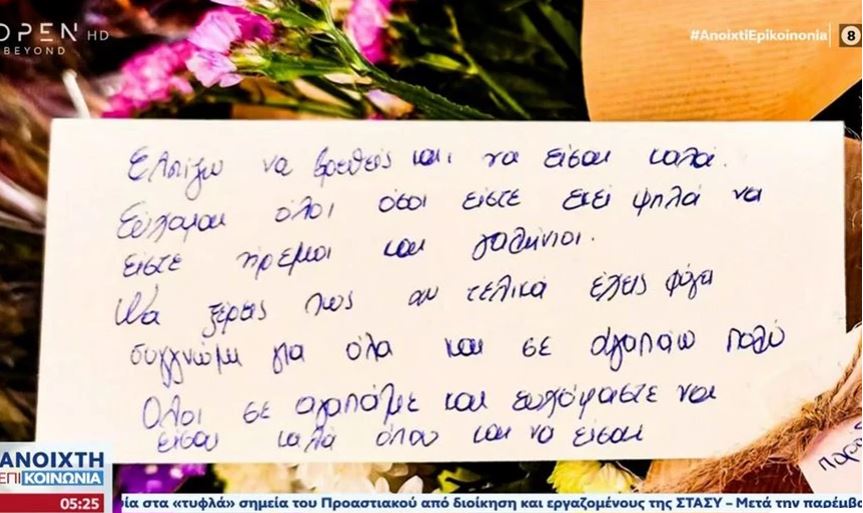 OPEN HD
BEYOND
#AnoixtiEpikoinonia
8
Ελπίζω να βρεθείς και να είσαι καλά.
Εύχομαι όλοι όσοι είστε εκεί ψηλά να
είστε ήρεμοι και γαλήνιοι.
Να ξέρεις πως αν τελικά έχεις φύγει
συγγνώμη για όλα και σε αγαπάω πολύ
Όλοι σε αγαπάμε και ευχόμαστε να
είσαι καλά όπου και να είσαι
ΑΝΟΙΧΤΗ
ΕΠΙΚΟΙΝΩΝΙΑ
05:25
ία στα «τυφλά» σημεία του Προαστιακού από διοίκηση και εργαζομένους της ΣΤΑΣΥ – Μετά την παρέμβα